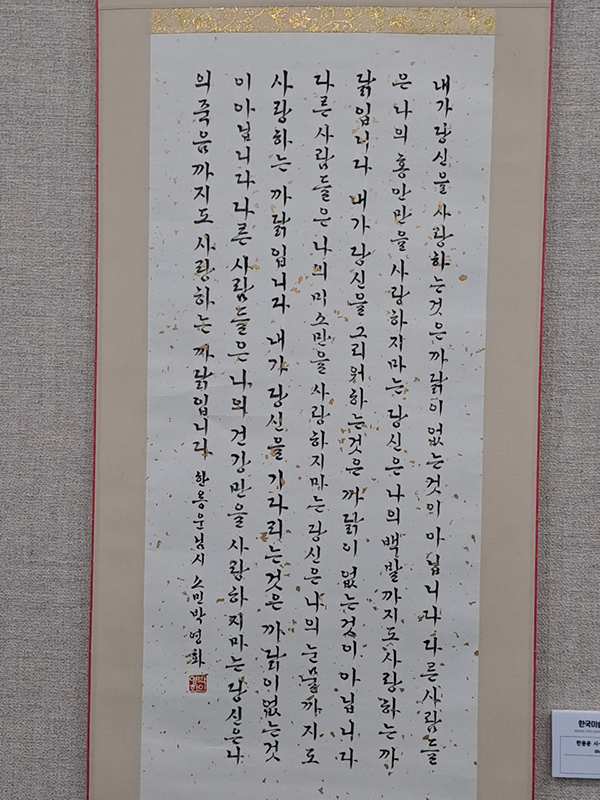 내가 당신을 사랑하는것은 까닭이 없는것이 아닙니다 다른사람들
은 나의 홍안만을 사랑하지마는 당신은 나의 백발까지도 사랑하는 까
닭입니다 내가 당신을 그리워하는것은 까닭이 없는것이 아닙니다
다른 사람들은 나의 미소만을 사랑하지마는 당신은 나의 눈물까지도
사랑하는 까닭입니다 내가 당신을 기다리는것은 까닭이없는것
이 아닙니다 다른 사람들은 나의 건강만을 사랑하지마는 당신은 나
의 죽음까지도 사랑하는 까닭입니다 한용운님시 소민 박영화
한국미술
한용운 시